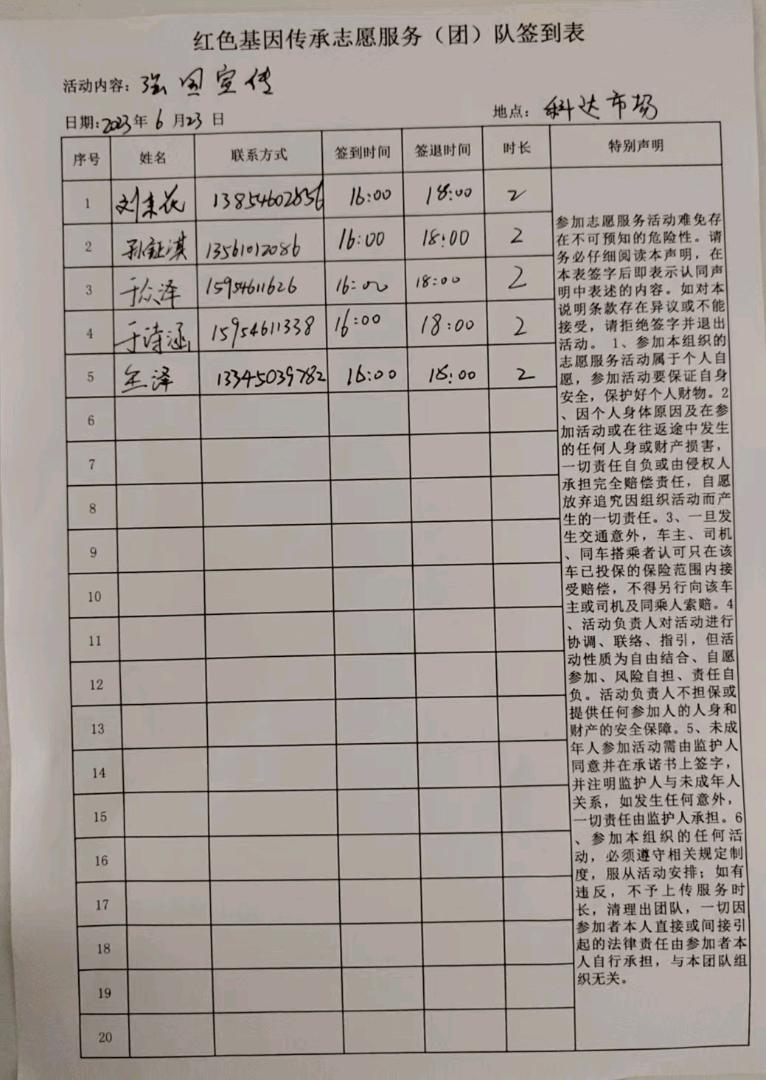 红色基因传承志愿服务（团）队签到表
活动内容：强国宣传
日期：2023年6月23日 地点：科达市场
序号 姓名 联系方式 签到时间 签退时间 时长 特别声明
1 13854602856 16:00 18:00 2
2 孙钰淇 13561012086 16:00 18:00 2
3 于众泽 15954611626 16:00 18:00 2
4 于诗涵 15954611338 16:00 18:00 2
5 13345039782 16:00 18:00 2
6
7
8
9
10
11
12
13
14
15
16
17
18
19
20
参加志愿服务活动难免存
在不可预知的危险性。请
务必仔细阅读本声明，在
本表签字后即表示认同声
明中表述的内容。如对本
说明条款存在异议或不能
接受，请拒绝签字并退出
活动。 1、参加本组织的
志愿服务活动属于个人自
愿，参加活动要保证自身
安全，保护好个人财物。2
、因个人身体原因及在参
加活动或在往返途中发生
的任何人身或财产损害，
一切责任自负或由侵权人
承担完全赔偿责任，自愿
放弃追究因组织活动而产
生的一切责任。3、一旦发
生交通意外，车主、司机
、同车搭乘者认可只在该
车已投保的保险范围内接
受赔偿，不得另行向该车
主或司机及同乘人索赔。4
、活动负责人对活动进行
协调、联络、指引，但活
动性质为自由结合、自愿
参加、风险自担、责任自
负。活动负责人不担保或
提供任何参加人的人身和
财产的安全保障。5、未成
年人参加活动需由监护人
同意并在承诺书上签字，
并注明监护人与未成年人
关系，如发生任何意外，
一切责任由监护人承担。6
、参加本组织的任何活
动，必须遵守相关规定制
度，服从活动安排；如有
违反，不予上传服务时
长，清理出团队，一切因
参加者本人直接或间接引
起的法律责任由参加者本
人自行承担，与本团队组
织无关。